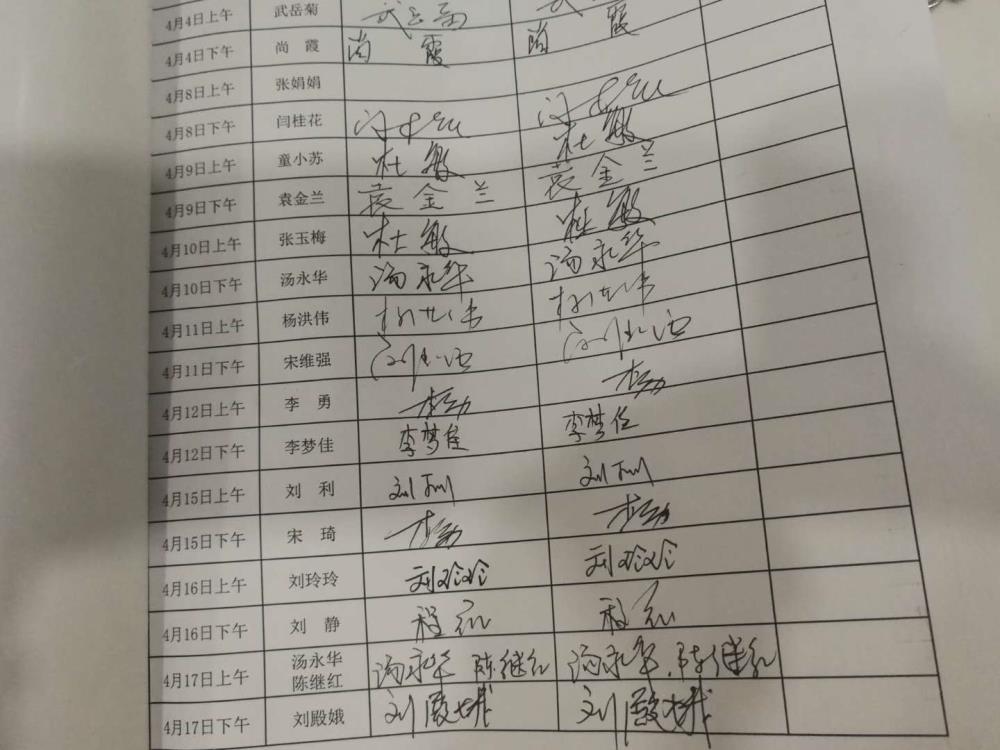 4月4日上午 武岳菊 武岳菊 武
4月4日下午 尚 霞 尚 霞 尚 霞
4月8日上午 张娟娟
4月8日下午 闫桂花
4月9日上午 童小苏 杜敏 杜敏
4月9日下午 袁金兰 袁金兰 袁金兰
4月10日上午 张玉梅 杜敏 杜敏
4月10日下午 汤永华 汤永华 汤永华
4月11日上午 杨洪伟
4月11日下午 宋维强
4月12日上午 李 勇
4月12日下午 李梦佳 李梦佳 李梦佳
4月15日上午 刘 利 刘利 刘利
4月15日下午 宋 琦
4月16日上午 刘玲玲 刘玲玲 刘玲玲
4月16日下午 刘 静 程红 程红
4月17日上午 汤永华 陈继红 汤永华 陈继红 汤永华.陈继红
4月17日下午 刘殿娥 刘殿娥 刘殿娥